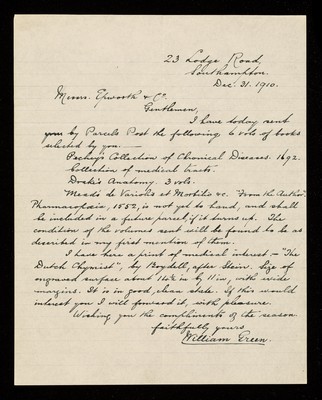 23 Lodge Road,
Southampton.
Dec. 31. 1910.
Messrs. Epworth & Co.
Gentlemen,
I have today sent
you by Parcels Post the following 6 vols of books
selected by you.—
Pechey's Collection of Chronical Diseases. 1692.
Collection of medical tracts.
Drake's Anatomy. 3 vols.
Meads de Variolis et Morbillis &c. "From the Author".
Pharmacopoeia, 1552, is not yet to hand, and shall
be included in a future parcel, if it turns up. The
condition of the volumes sent will be found to be as
described in my first mention of them.
I have here a print of medical interest – "The
Dutch Chymist", by Boydell, after Stein. Size of
engraved surface about 14½ in by 11 in, with wide
margins. It is in good, clean state. If this would
interest you I will forward it, with pleasure.
Wishing you the compliments of the season
faithfully yours
William Green.